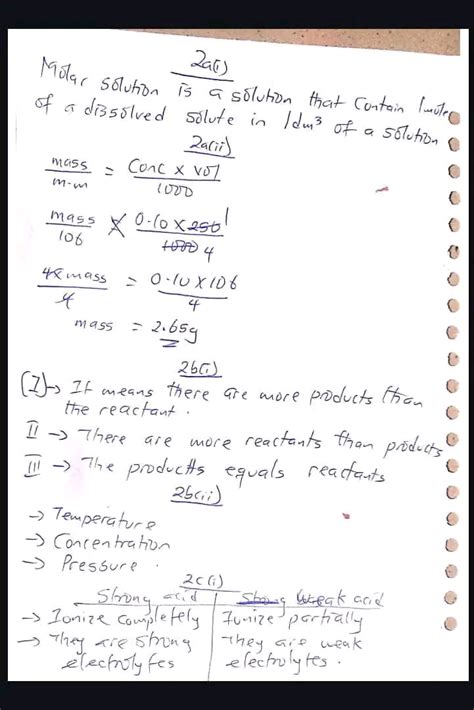 2a(i)
Molar solution is a solution that contain 1mole
of a dissolved solute in 1dm³ of a solution
2a(ii)
mass / m.m = Conc x vol / 1000
mass / 106 = 0.10 x 250 1 / 1000 4
4x mass / 4 = 0.10 x 106 / 4
mass = 2.65g
2b(i)
(I) → It means there are more products than
the reactant.
II → There are more reactants than products
III → The products equals reactants
2b(ii)
→ Temperature
→ Concentration
→ Pressure.
2c(i)
Strong acid | Strong Weak acid
→ Ionize completely | Ionize partially
→ They are strong | They are weak
electrolytes | electrolytes.